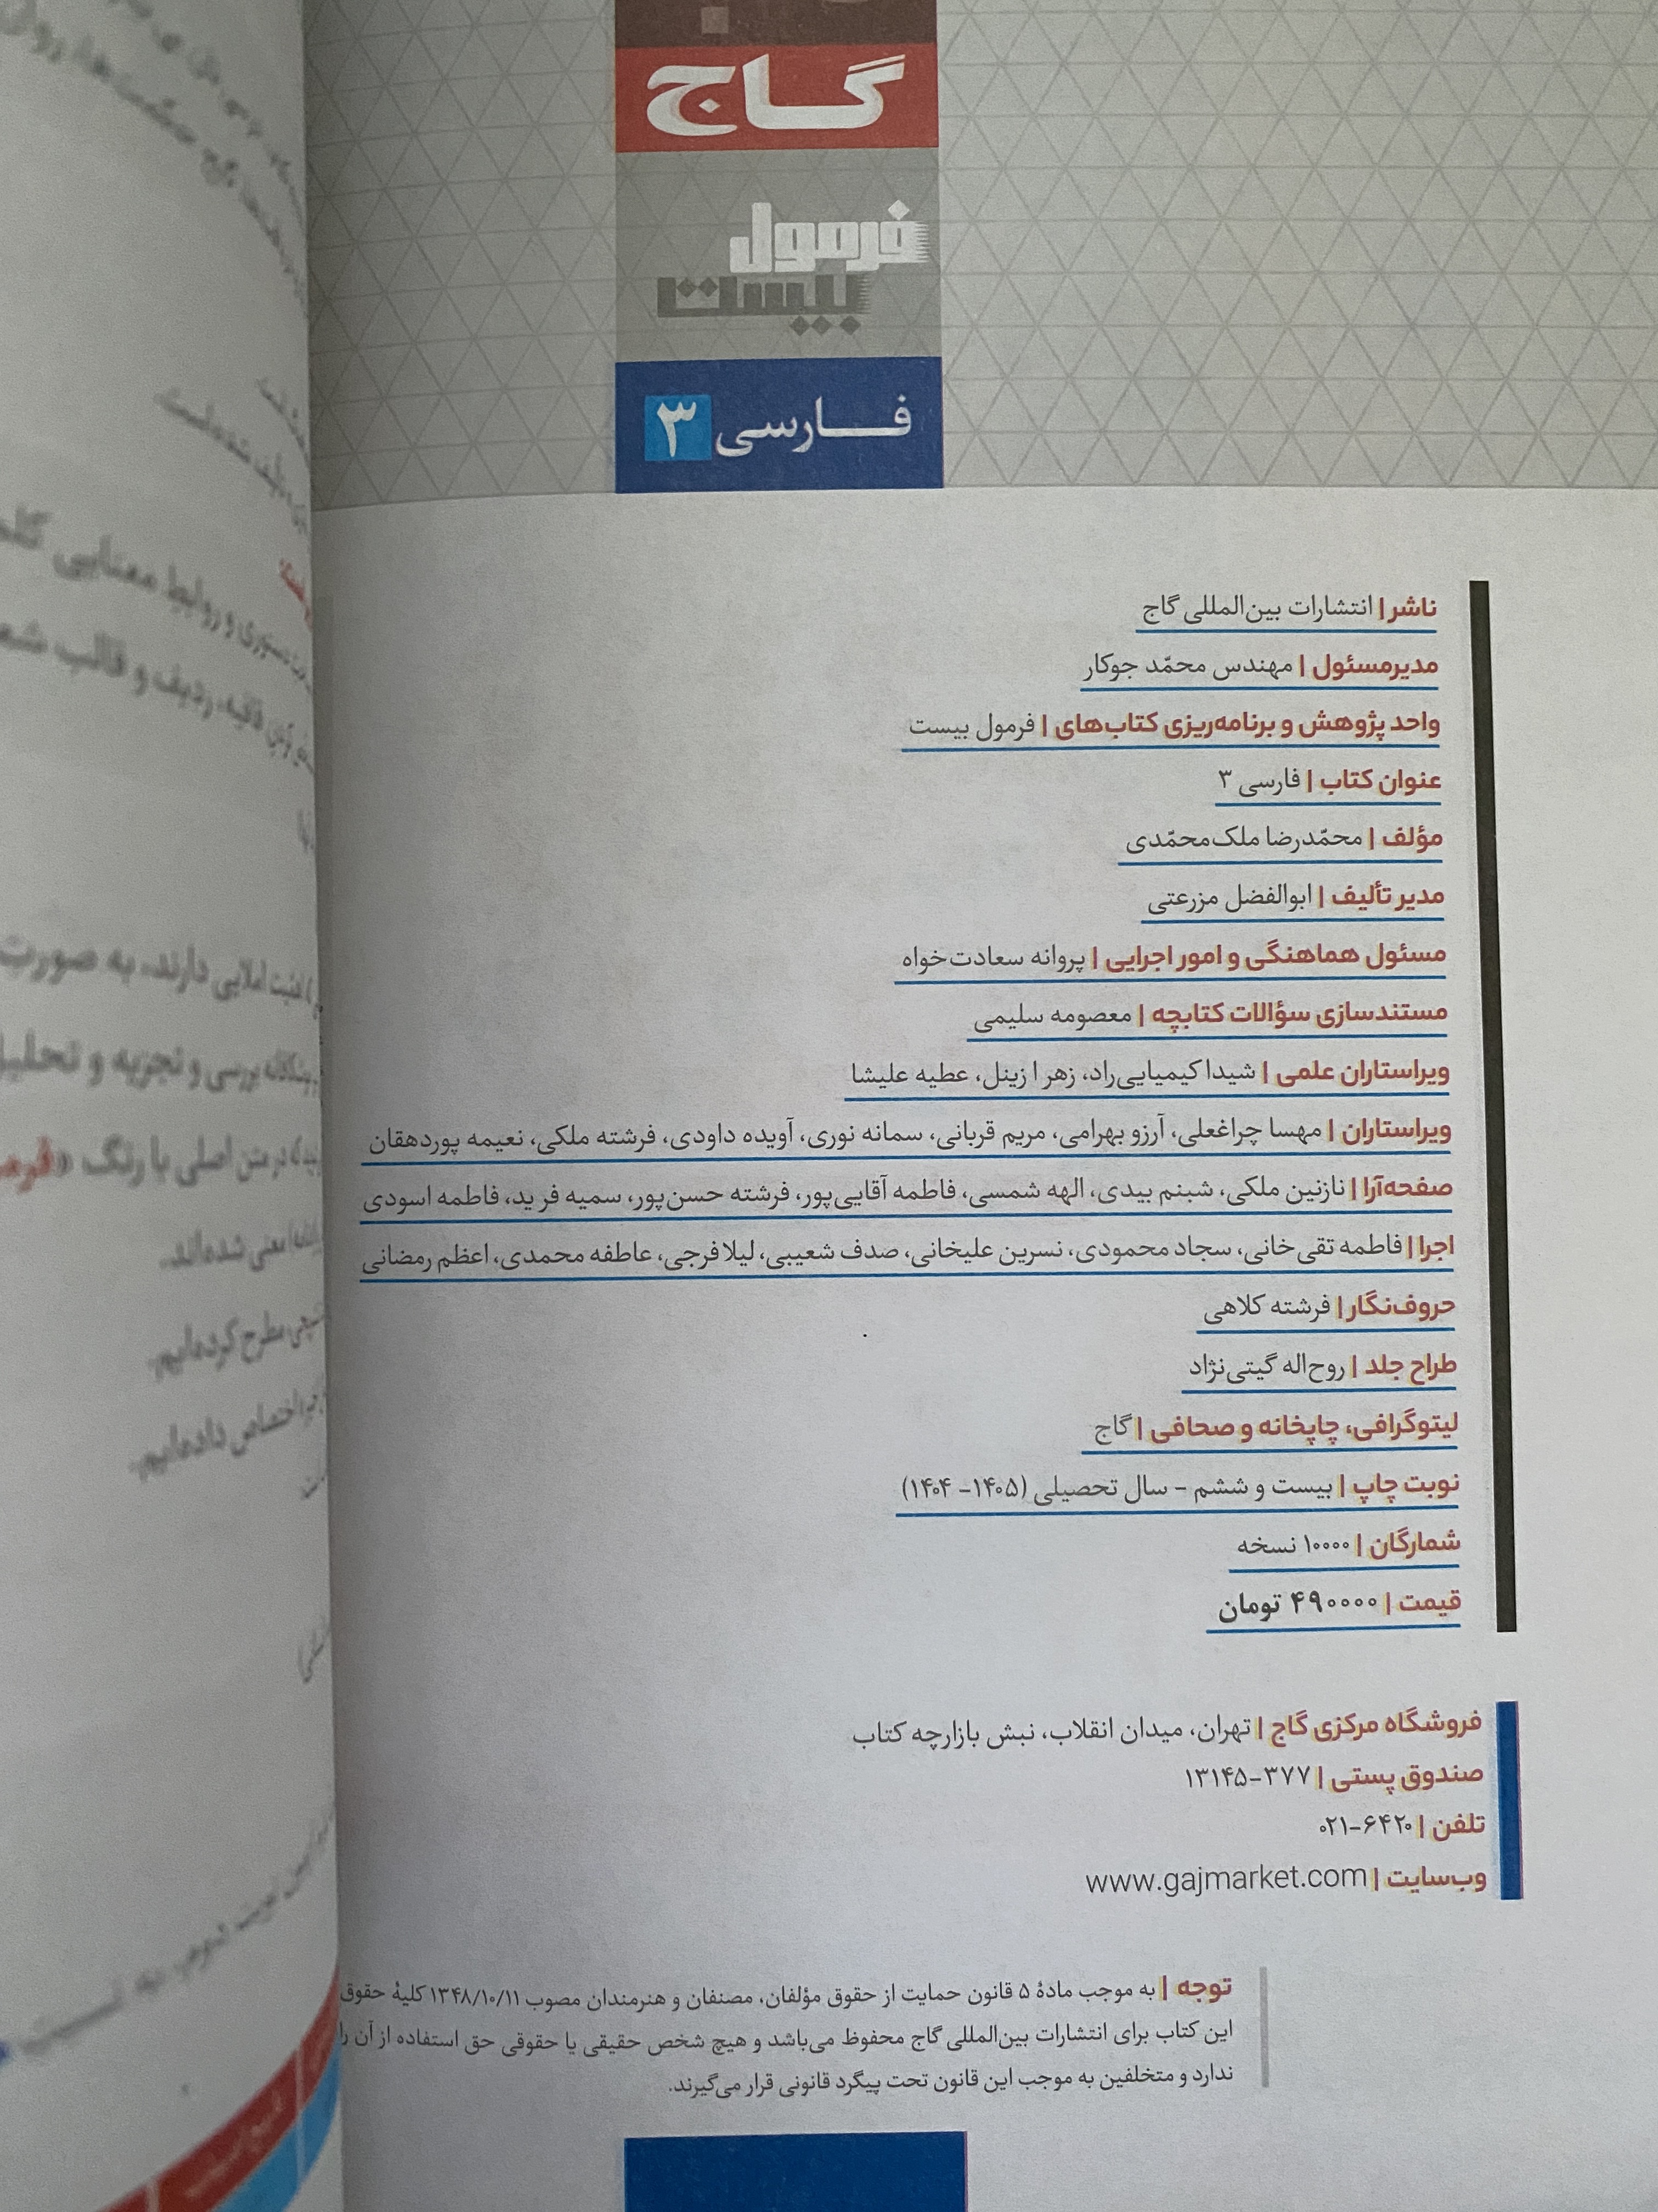 گاج
فرمول
بیست
فارسی ۳
ناشر | انتشارات بین‌المللی گاج
مدیرمسئول | مهندس محمّد جوکار
واحد پژوهش و برنامه‌ریزی کتاب‌های | فرمول بیست
عنوان کتاب | فارسی ۳
مؤلف | محمّدرضا ملک‌محمّدی
مدیر تألیف | ابوالفضل مزرعتی
مسئول هماهنگی و امور اجرایی | پروانه سعادت‌خواه
مستندسازی سؤالات کتابچه | معصومه سلیمی
ویراستاران علمی | شیدا کیمیایی‌راد، زهرا زینل، عطیه علیشا
ویراستاران | مهسا چراغعلی، آرزو بهرامی، مریم قربانی، سمانه نوری، آویده داودی، فرشته ملکی، نعیمه پوردهقان
صفحه‌آرا | نازنین ملکی، شبنم بیدی، الهه شمسی، فاطمه آقایی‌پور، فرشته حسن‌پور، سمیه فرید، فاطمه اسودی
اجرا | فاطمه تقی‌خانی، سجاد محمودی، نسرین علیخانی، صدف شعیبی، لیلا فرجی، عاطفه محمدی، اعظم رمضانی
حروف‌نگار | فرشته کلاهی
طراح جلد | روح‌اله گیتی‌نژاد
لیتوگرافی، چاپخانه و صحافی | گاج
نوبت چاپ | بیست و ششم - سال تحصیلی (۱۴۰۵- ۱۴۰۴)
شمارگان | ۱۰۰۰۰ نسخه
قیمت | ۴۹۰۰۰۰ تومان
فروشگاه مرکزی گاج | تهران، میدان انقلاب، نبش بازارچه کتاب
صندوق پستی | ۳۷۷-۱۳۱۴۵
تلفن | ۰۲۱-۶۴۲۰
وب‌سایت | www.gajmarket.com
توجه | به موجب مادهٔ ۵ قانون حمایت از حقوق مؤلفان، مصنفان و هنرمندان مصوب ۱۳۴۸/۱۰/۱۱ کلیهٔ حقوق
این کتاب برای انتشارات بین‌المللی گاج محفوظ می‌باشد و هیچ شخص حقیقی یا حقوقی حق استفاده از آن را
ندارد و متخلفین به موجب این قانون تحت پیگرد قانونی قرار می‌گیرند.
دستوری و روابط معنایی
قافیه، ردیف و قالب
املایی دارند، به صورت
بررسی و تجزیه و
که در متن اصلی با رنگ
معنی شده‌اند.
مطرح کرده‌ایم.
اختصاص داده‌ایم.